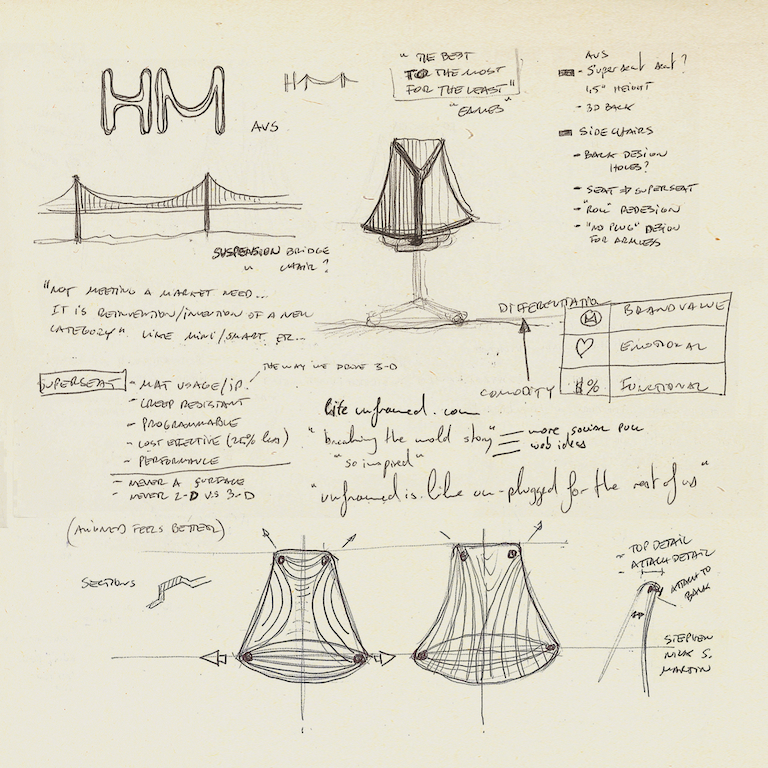 HM
AVS
HM
"THE BEST
FOR THE MOST
FOR THE LEAST"
"EAMES"
AVS
- Superseat seat?
1.5" HEIGHT
- 3D BACK
SIDE CHAIRS
- BACK DESIGN
HOLES?
- SEAT → SUPERSEAT
- REDESIGN
- "NO PLUG" DESIGN
FOR ARMLESS
SUSPENSION BRIDGE
" CHAIR?
"NOT MEETING A MARKET NEED...
IT IS REINVENTION/INVENTION OF A NEW
CATEGORY" LIKE MINI/SMART, ETC...
DIFFERENTIATIO
COMODITY
M BRAND VALUE
♡ EMOTIONAL
$% FUNCTIONAL
THE WAY WE DROVE 3-D
SUPERSEAT
- MAT USAGE/IP.
- CREEP RESISTANT
- PROGRAMMABLE
- COST EFFECTIVE (25% less)
- PERFORMANCE
- NEVER A SURFACE
- NEVER 2-D VS 3-D
life unframed.com
"breaking the mold story"
more social pull
web ideas
"so inspired"
"unframed is like un-plugged for the rest of us"
(ALIGNED FEELS BETTER)
SECTIONS
- TOP DETAIL
- ATTACH DETAIL
ATTACH TO
BACK
STEPHEN
NICK S.
MARTIN